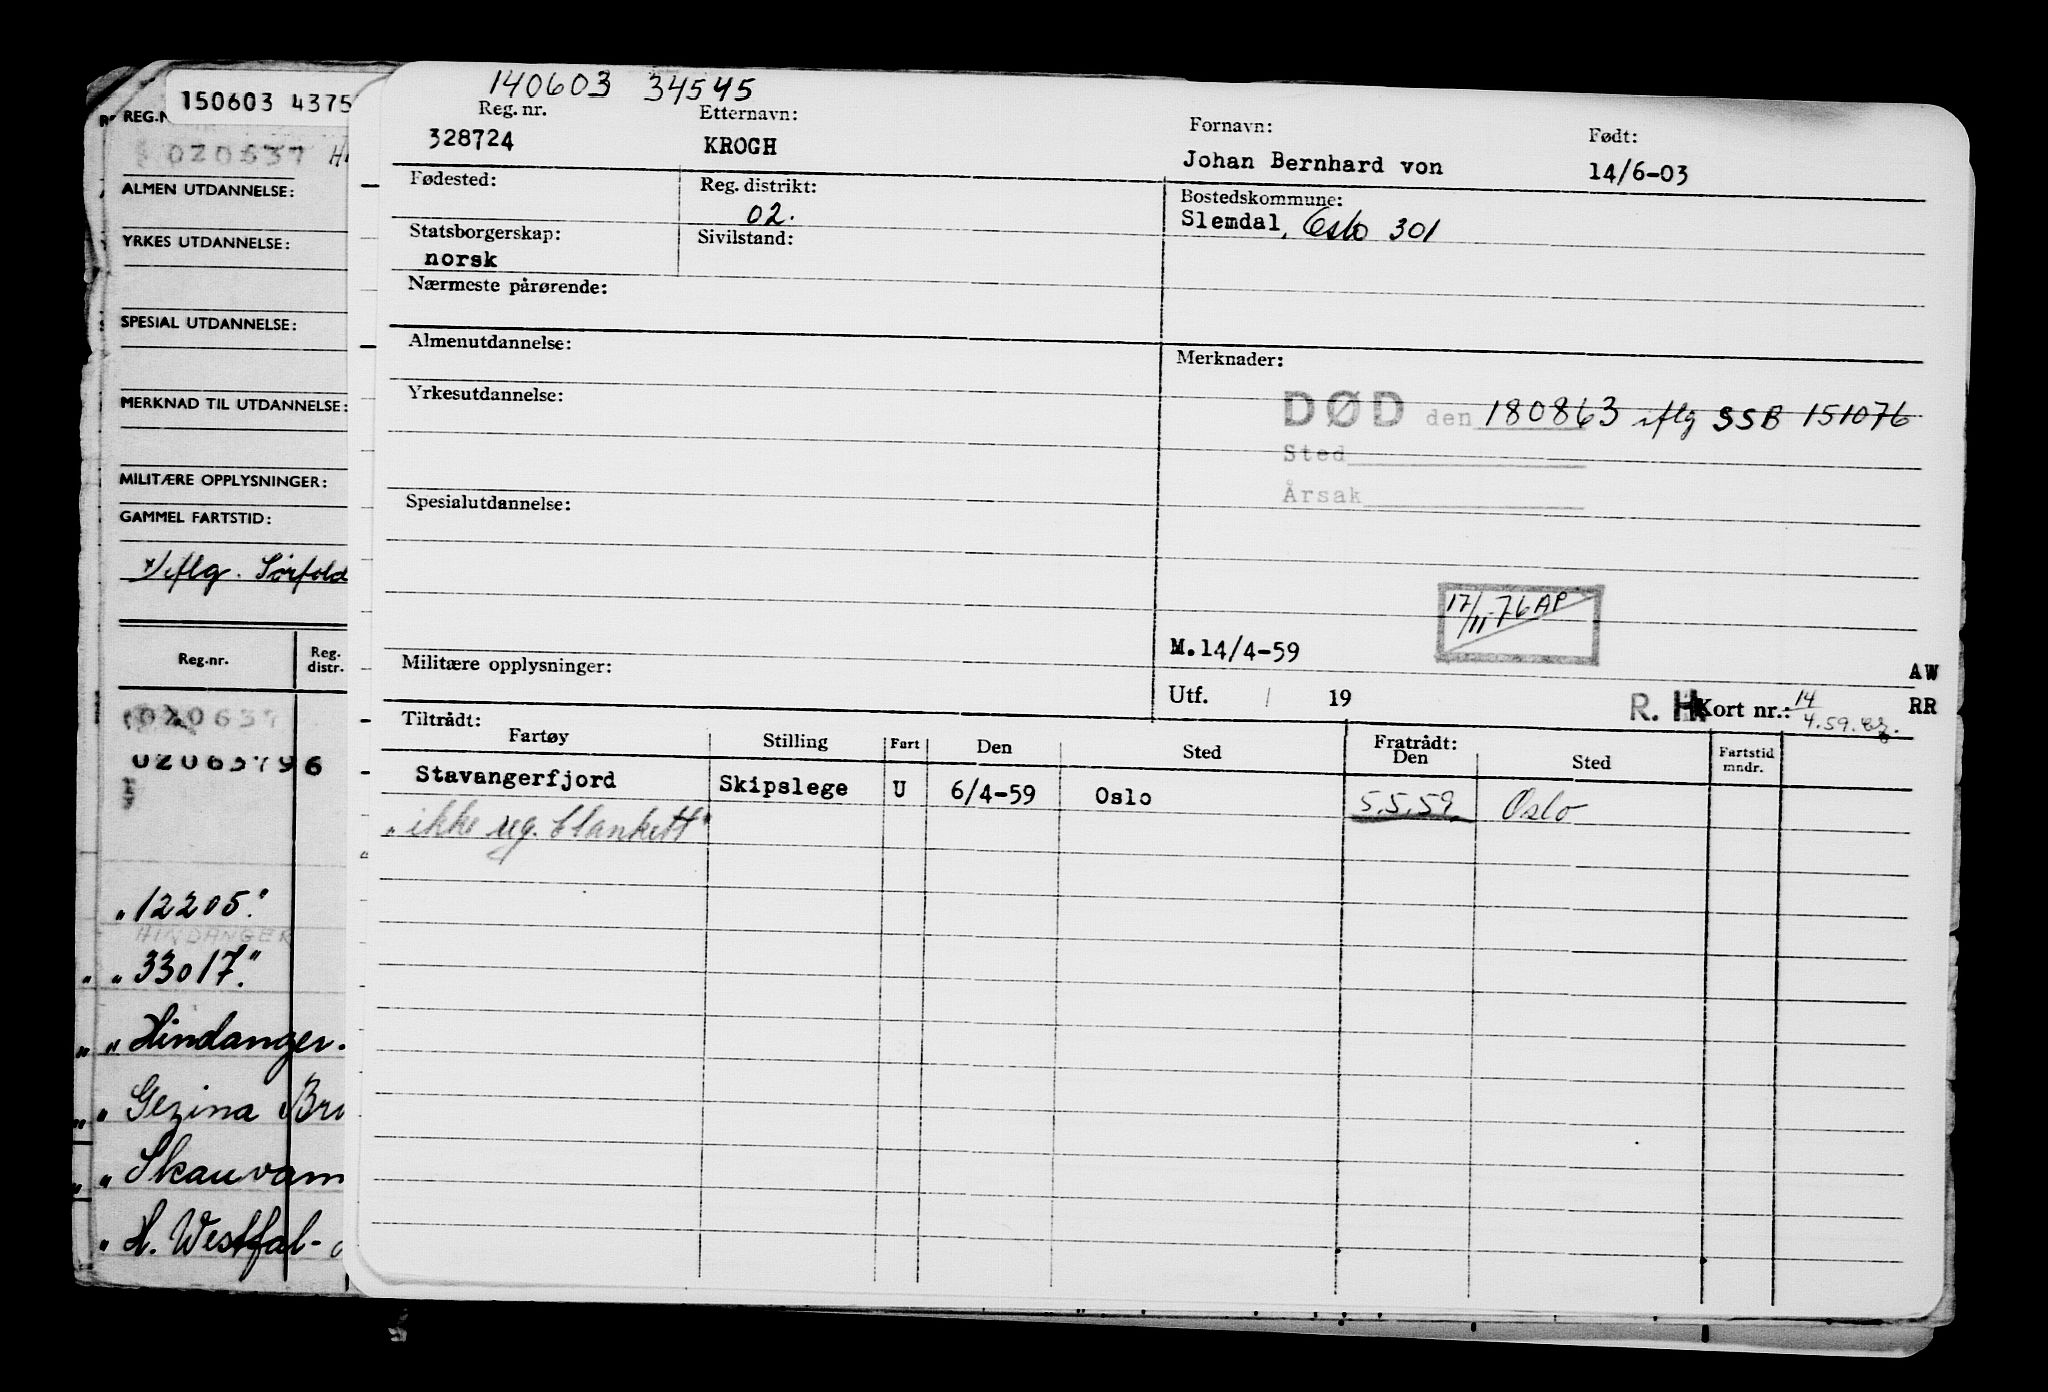 150603 4375
REG.N
020637 H
ALMEN UTDANNELSE:
YRKES UTDANNELSE:
SPESIAL UTDANNELSE:
MERKNAD TIL UTDANNELSE:
MILITÆRE OPPLYSNINGER:
GAMMEL FARTSTID:
x/iflg. Sørfold
Reg.nr. Reg. distr.
020637
02063796
"12205."
HINDANGER
" "33017."
" " Hindanger.
" " Gezina Bro
" " Skauvann
" H. Westfal-
140603 34545
Reg. nr. Etternavn: Fornavn: Født:
328724 KROGH Johan Bernhard von 14/6-03
Fødested: Reg. distrikt: Bostedskommune:
02. Slemdal, Oslo 301
Statsborgerskap: Sivilstand:
norsk
Nærmeste pårørende:
Almenutdannelse: Merknader:
Yrkesutdannelse: DØD den 180863 iflg SSB 151076
Sted
Årsak
Spesialutdannelse:
17/11-76 AP
M.14/4-59
Militære opplysninger: AW
Utf. / 19 R. H. Kort nr.: 14/4.59. RR
Tiltrådt: Fratrådt:
Fartøy Stilling Fart Den Sted Den Sted Fartstid mndr.
Stavangerfjord Skipslege U 6/4-59 Oslo 5.5.59. Oslo
"ikke reg. blankett"